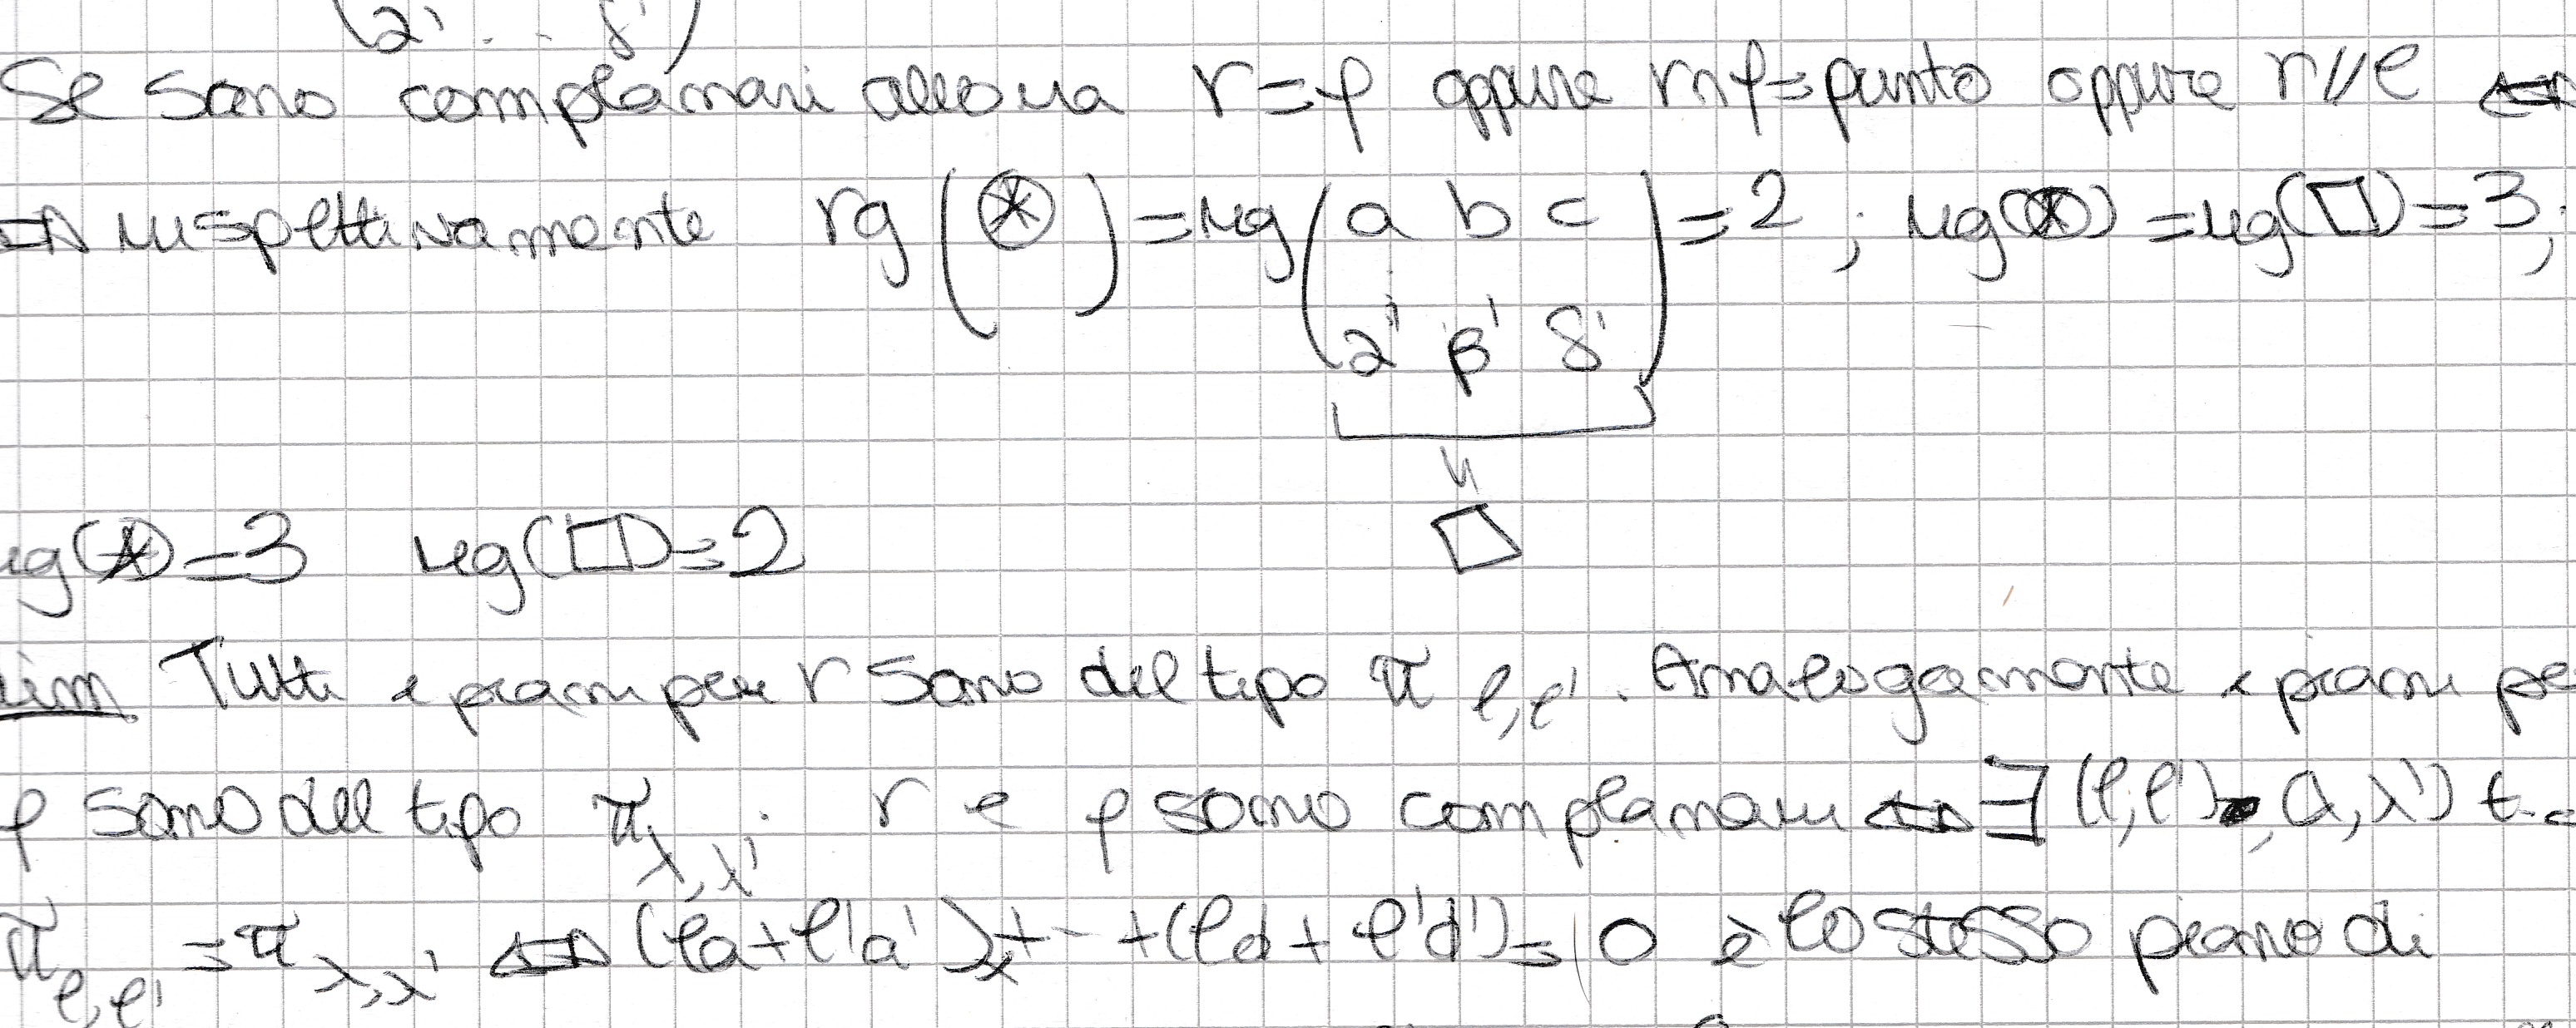 (α' . . . γ')
Se sono complanari allora r=ρ oppure r∩ρ=punto oppure r//ρ ⇔
⇔ rispettivamente rg(⊛)=rg(a b c
α' β' γ')=2 ; rg(⊛)=rg(□)=3;
"
□
rg(⊛)=3 rg(□)=2
dim Tutti i piani per r sono del tipo π ℓ,ℓ'. Analogamente i piani per
ρ sono del tipo π λ,λ'. r e ρ sono complanari ⇔ ∃ (ℓ,ℓ'), (λ,λ') t.c
π ℓ,ℓ' = π λ,λ' ⇔ (ℓa+ℓ'a')x+--+(ℓd+ℓ'd')=0 è lo stesso piano di